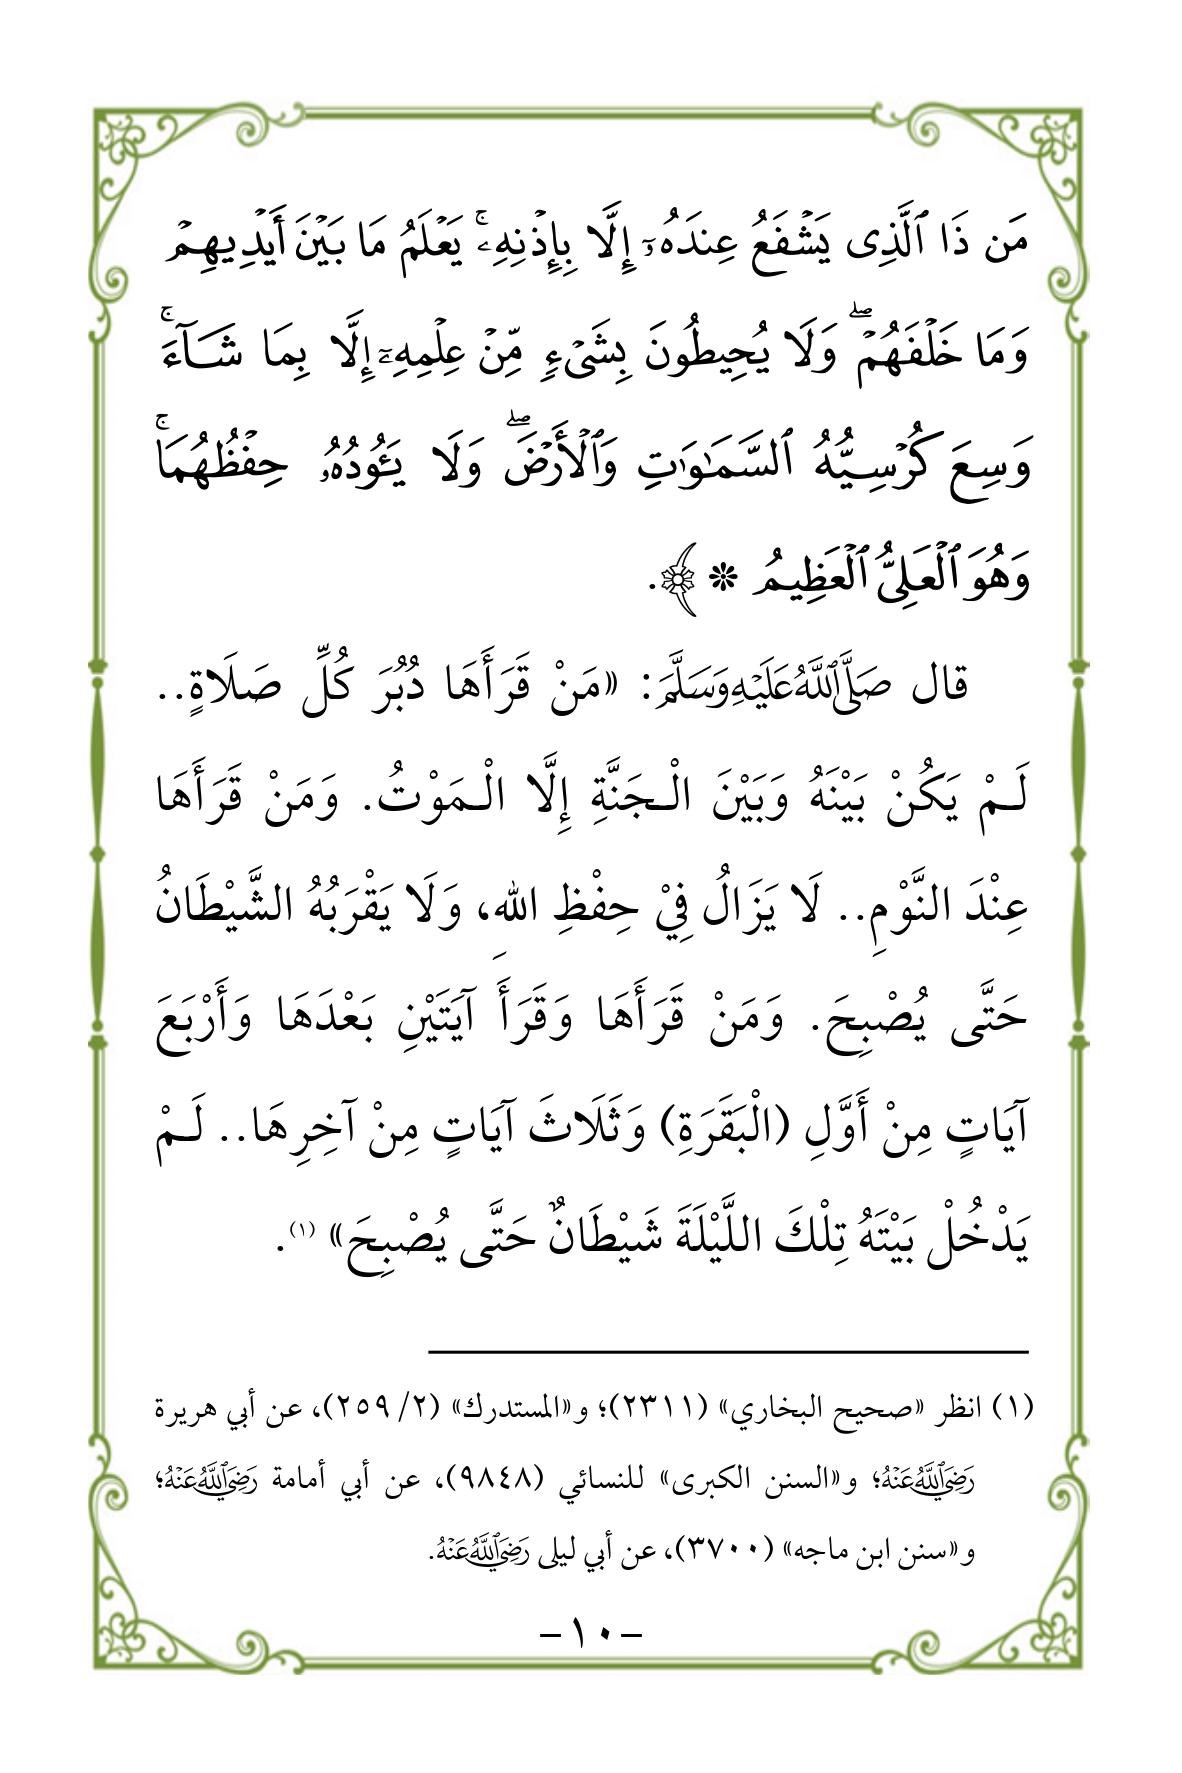 مَن ذَا ٱلَّذِى يَشْفَعُ عِندَهُۥٓ إِلَّا بِإِذْنِهِۦۚ يَعْلَمُ مَا بَيْنَ أَيْدِيهِمْ
وَمَا خَلْفَهُمْۖ وَلَا يُحِيطُونَ بِشَىْءٍ مِّنْ عِلْمِهِۦٓ إِلَّا بِمَا شَآءَۚ
وَسِعَ كُرْسِيُّهُ ٱلسَّمَـٰوَٰتِ وَٱلْأَرْضَۖ وَلَا يَـُٔودُهُۥ حِفْظُهُمَاۚ
وَهُوَ ٱلْعَلِىُّ ٱلْعَظِيمُ ❊ ﴾.
قال صَلَّىٱللَّهُعَلَيْهِوَسَلَّمَ: «مَنْ قَرَأَهَا دُبُرَ كُلِّ صَلَاةٍ..
لَـمْ يَكُنْ بَيْنَهُ وَبَيْنَ الْـجَنَّةِ إِلَّا الْـمَوْتُ. وَمَنْ قَرَأَهَا
عِنْدَ النَّوْمِ.. لَا يَزَالُ فِيْ حِفْظِ اللهِ، وَلَا يَقْرَبُهُ الشَّيْطَانُ
حَتَّى يُصْبِحَ. وَمَنْ قَرَأَهَا وَقَرَأَ آيَتَيْنِ بَعْدَهَا وَأَرْبَعَ
آيَاتٍ مِنْ أَوَّلِ (الْبَقَرَةِ) وَثَلَاثَ آيَاتٍ مِنْ آخِرِهَا.. لَـمْ
يَدْخُلْ بَيْتَهُ تِلْكَ اللَّيْلَةَ شَيْطَانٌ حَتَّى يُصْبِحَ» (١).
(١) انظر «صحيح البخاري» (٢٣١١)؛ و«المستدرك» (٢/ ٢٥٩)، عن أبي هريرة
رَضِيَٱللَّهُعَنْهُ؛ و«السنن الكبرى» للنسائي (٩٨٤٨)، عن أبي أمامة رَضِيَٱللَّهُعَنْهُ؛
و«سنن ابن ماجه» (٣٧٠٠)، عن أبي ليلى رَضِيَٱللَّهُعَنْهُ.
–١٠–